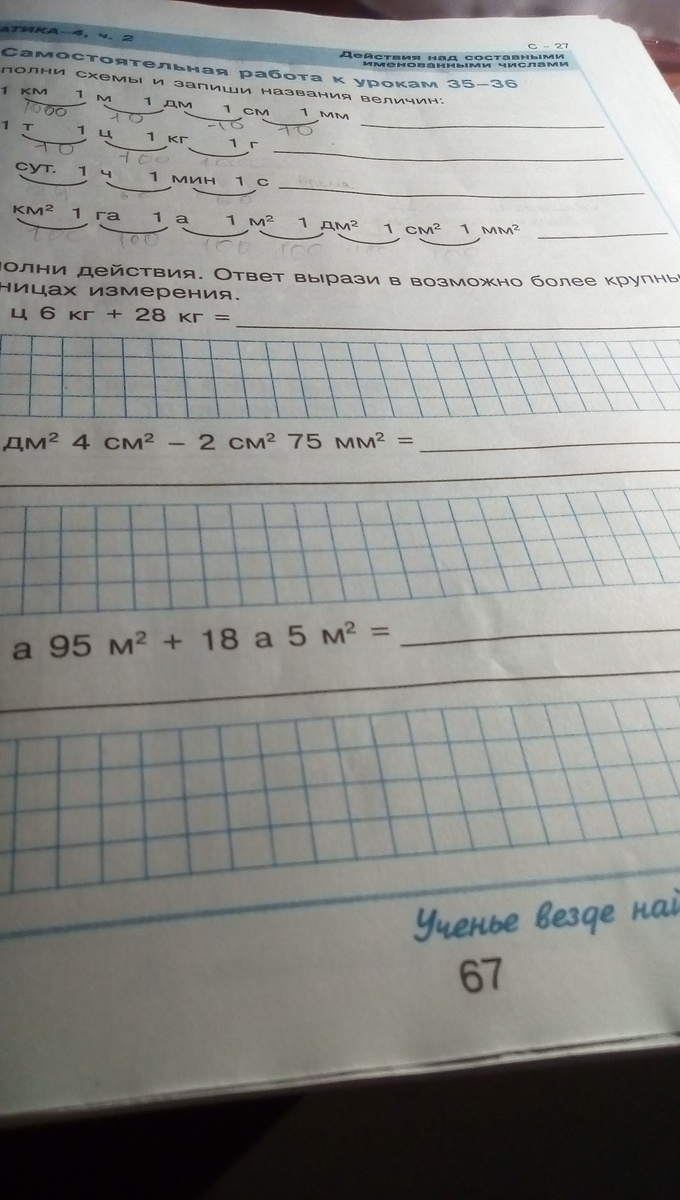 АТИКА–4, ч. 2
С – 27
Действия над составными
именованными числами
Самостоятельная работа к урокам 35–36
полни схемы и запиши названия величин:
1 км 1 м 1 дм 1 см 1 мм
1000 10 10 10
1 т 1 ц 1 кг 1 г
10 100
сут. 1 ч 1 мин 1 с
км² 1 га 1 а 1 м² 1 дм² 1 см² 1 мм²
100 100 100 100
олни действия. Ответ вырази в возможно более крупны
ницах измерения.
ц 6 кг + 28 кг =
дм² 4 см² – 2 см² 75 мм² =
а 95 м² + 18 а 5 м² =
Ученье везде най
67